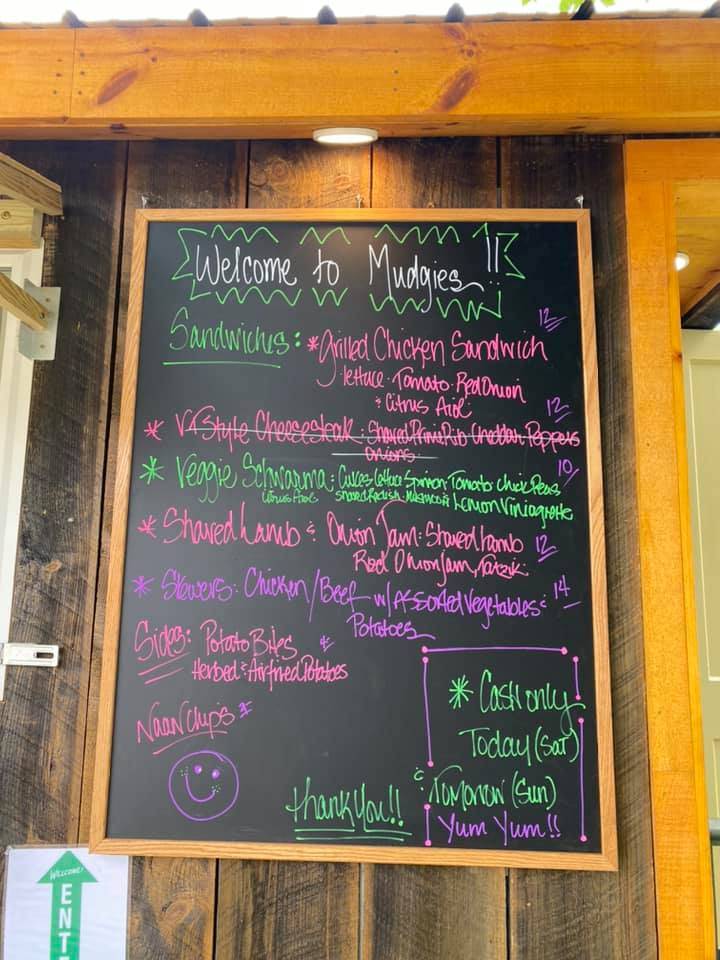 Welcome to Mudgies!!
Sandwiches: *Grilled Chicken Sandwich 12
lettuce · Tomato · Red Onion
& Citrus Aioli
* VT Style Cheesesteak: Shaved Prime Rib Cheddar Peppers 12
onions
* Veggie Schwarma: Cukes Lettuce Tomato Chick Peas 10
Citrus Aioli Shaved Radish Lemon Viniagrette
* Shaved Lamb & Onion Jam: Shaved Lamb 12
Red Onion Jam, Tatziki
* Skewers: Chicken/Beef w/ Assorted Vegetables & 14
Potatoes
Sides: Potato Bites 4
Herbed & Airfried Potatoes
Naan Chips 3
* Cash only
Today (Sat)
& Tomorrow (Sun)
Yum Yum!!
thank you!!
Welcome!
ENT